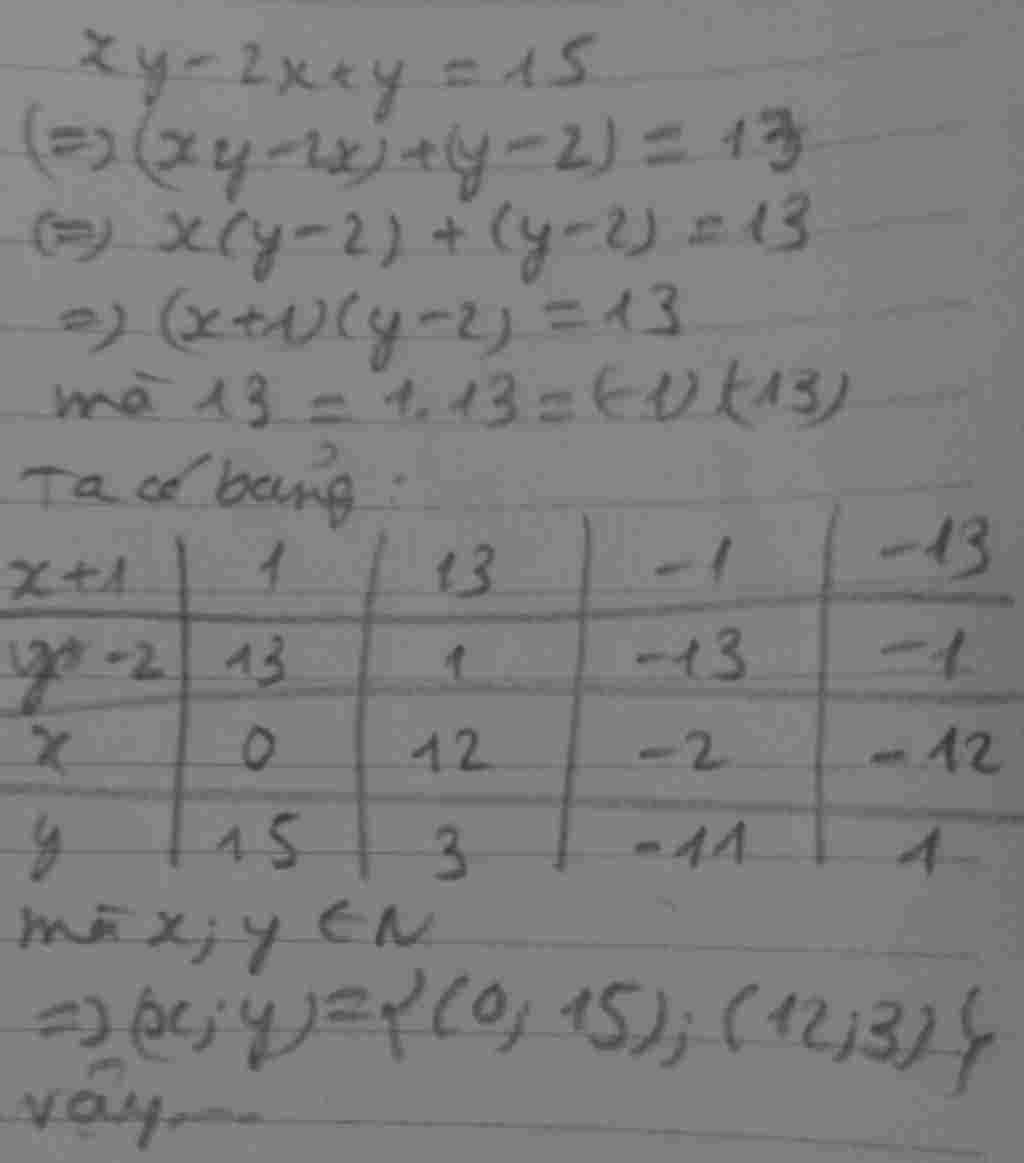 xy - 2x + y = 15
(=) (xy - 2x) + (y - 2) = 13
(=) x(y - 2) + (y - 2) = 13
=) (x + 1)(y - 2) = 13
mà 13 = 1. 13 = (-1)(-13)
Ta có bảng :
x+1 | 1 | 13 | -1 | -13
y -2 | 13 | 1 | -13 | -1
x | 0 | 12 | -2 | -12
y | 15 | 3 | -11 | 1
mà x; y ∈ N
=) (x; y) = {(0; 15); (12; 3)}
vậy.....